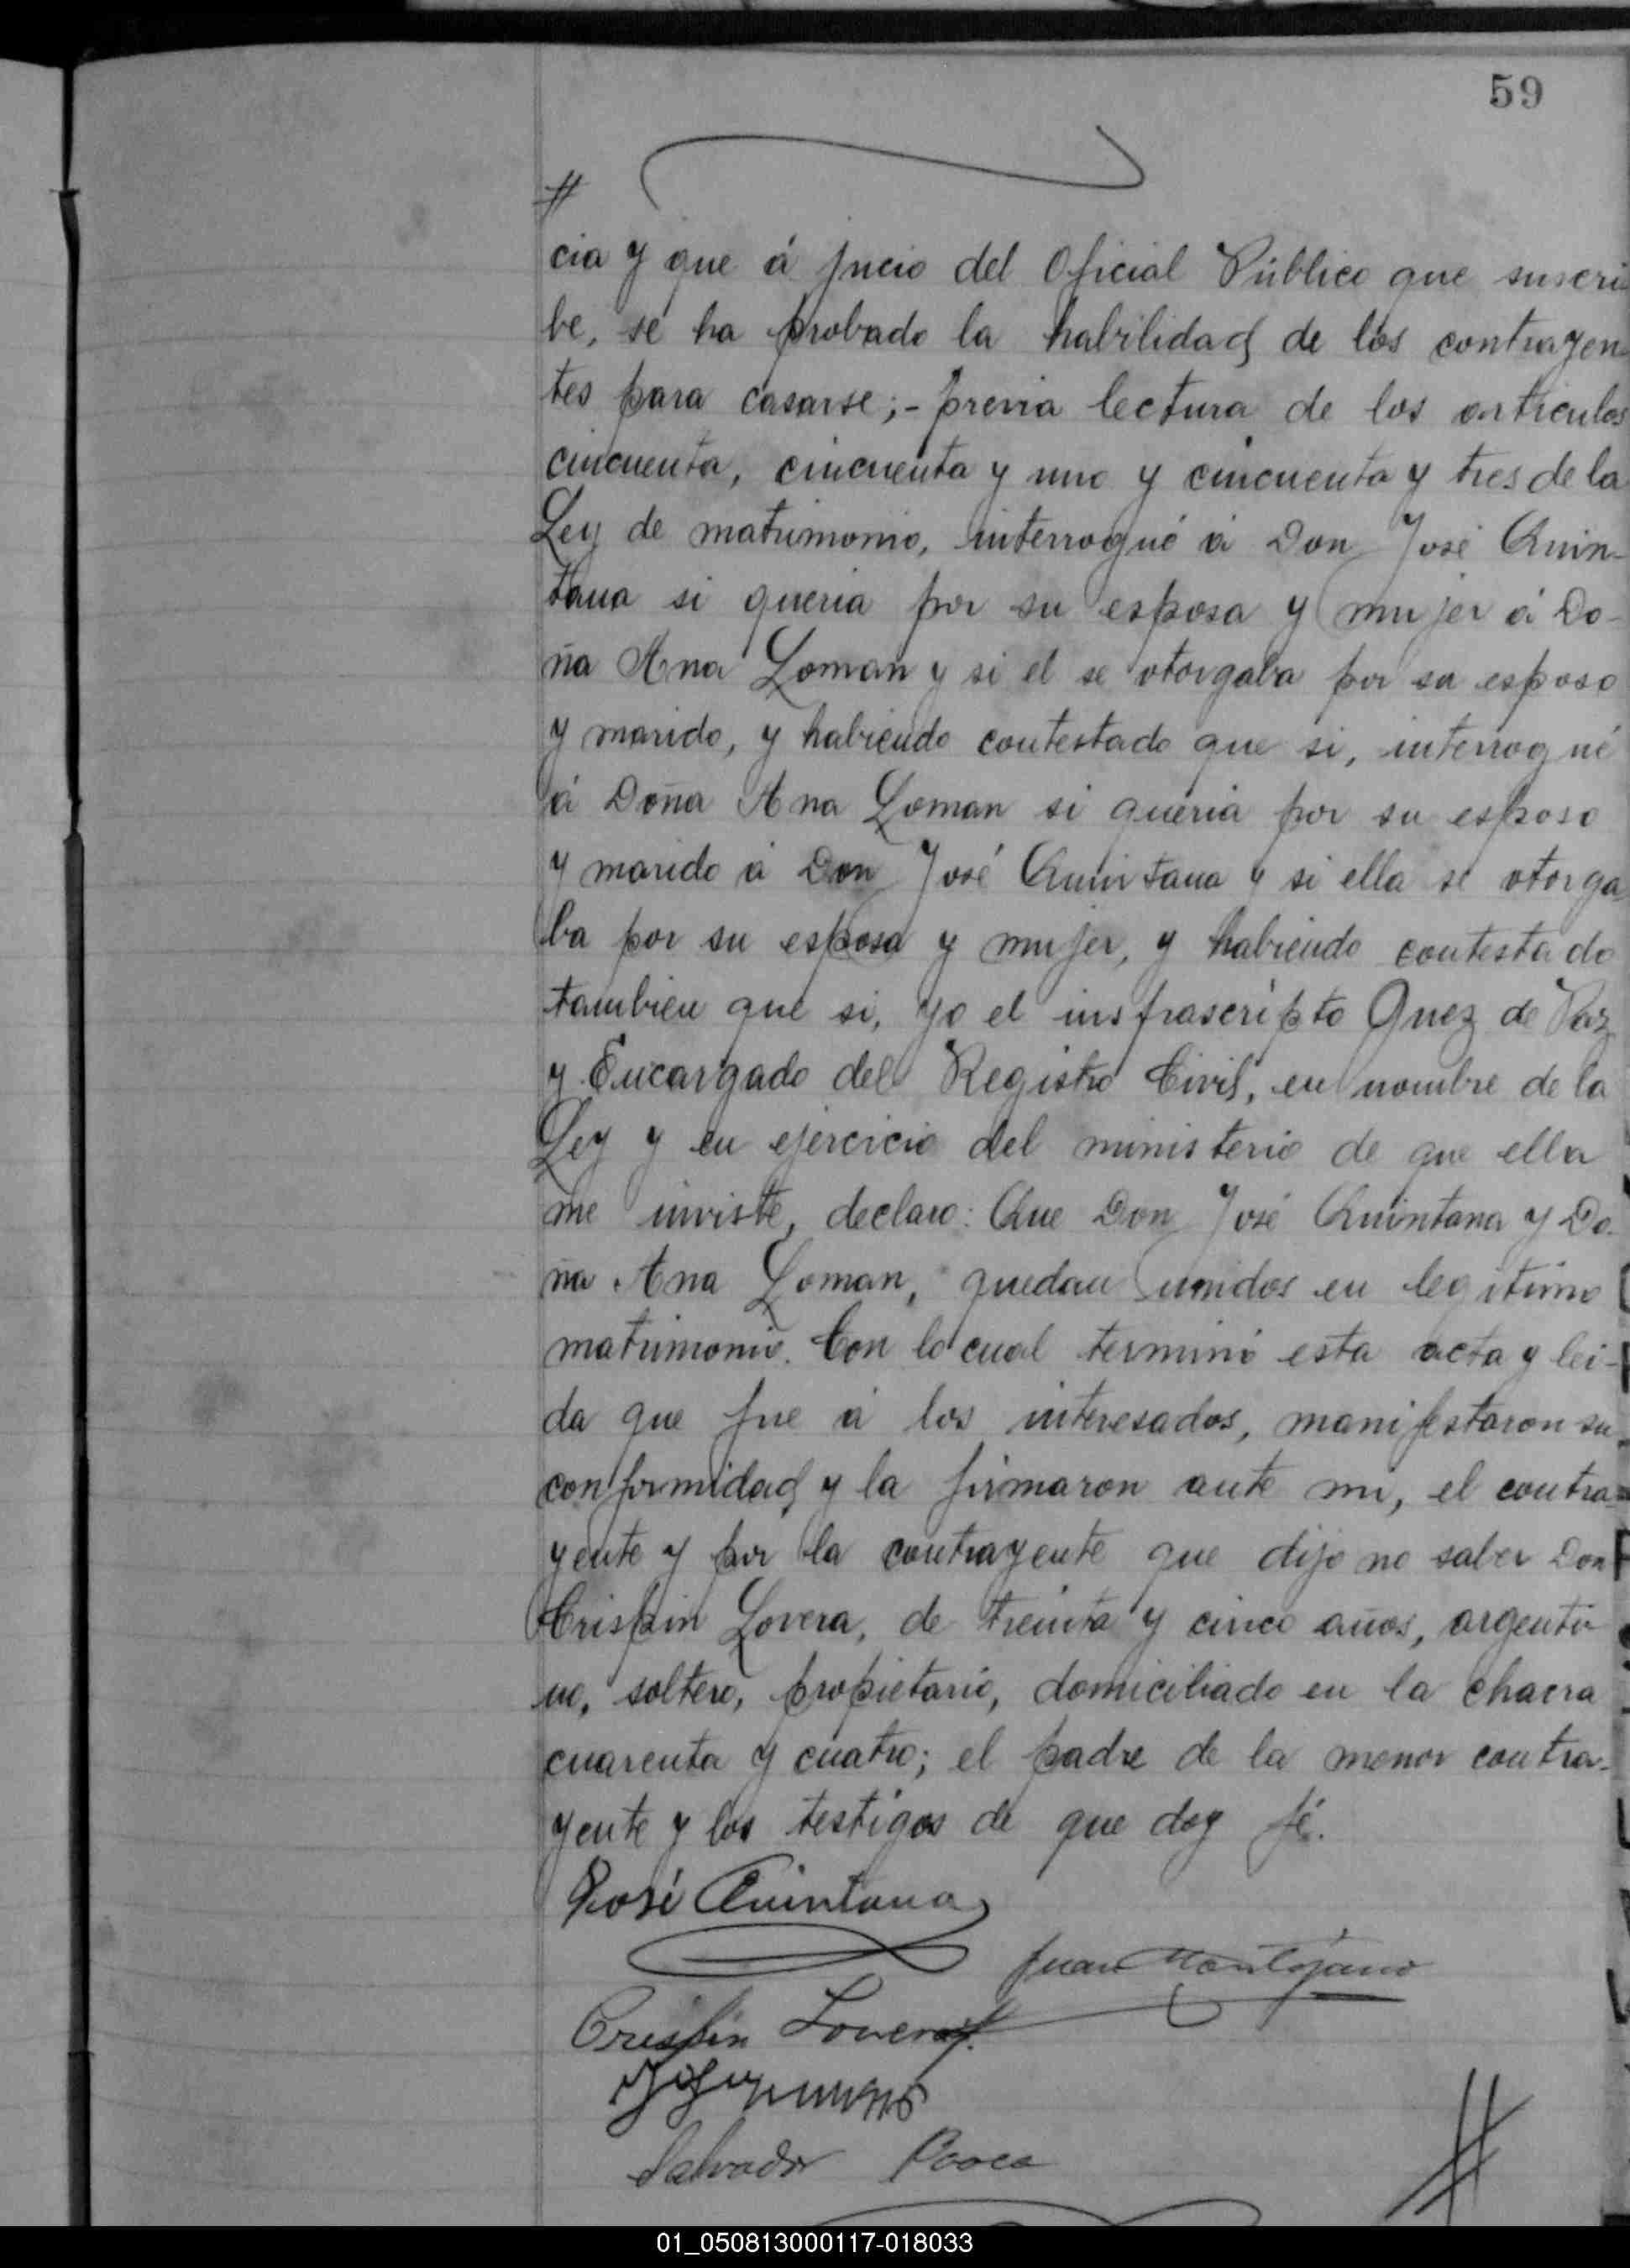 59
#
cia y que á jucio del Oficial Público que suscri
be, se ha probado la habilidad de los contrayen
tes para casarse;- previa lectura de los articulos
cincuenta, cincuenta y uno y cincuenta y tres de la
Ley de matrimonio, interrogué á Don José Quin-
tana si queria por su esposa y mujer á Do-
ña Ana Loman y si el se otorgaba por su esposo
y marido, y habiendo contestado que si, interrogué
á Doña Ana Loman si queria por su esposo
y marido á Don José Quintana y si ella se otorga
ba por su esposa y mujer, y habiendo contestado
tambien que si, yo el insfrascripto Quez de Paz
y Encargado del Registro Civil, en nombre de la
Ley y en ejercicio del ministerio de que ella
me inviste, declaro: Que Don José Quintana y Do-
ña Ana Loman, quedan unidos en legitimo
matrimonio. Con lo cual terminó esta acta y lei-
da que fue á los interesados, manifestaron su
conformidad y la firmaron ante mi, el contra-
yente y por la contrayente que dijo no saber Don
Crispin Lovera, de treinta y cinco años, argenti
no, soltero, propietario, domiciliado en la chacra
cuarenta y cuatro; el padre de la menor contra-
yente y los testigos de que doy fé.
José Quintana
Juan
Crispin Lovera
Salvador
#
01_050813000117-018033